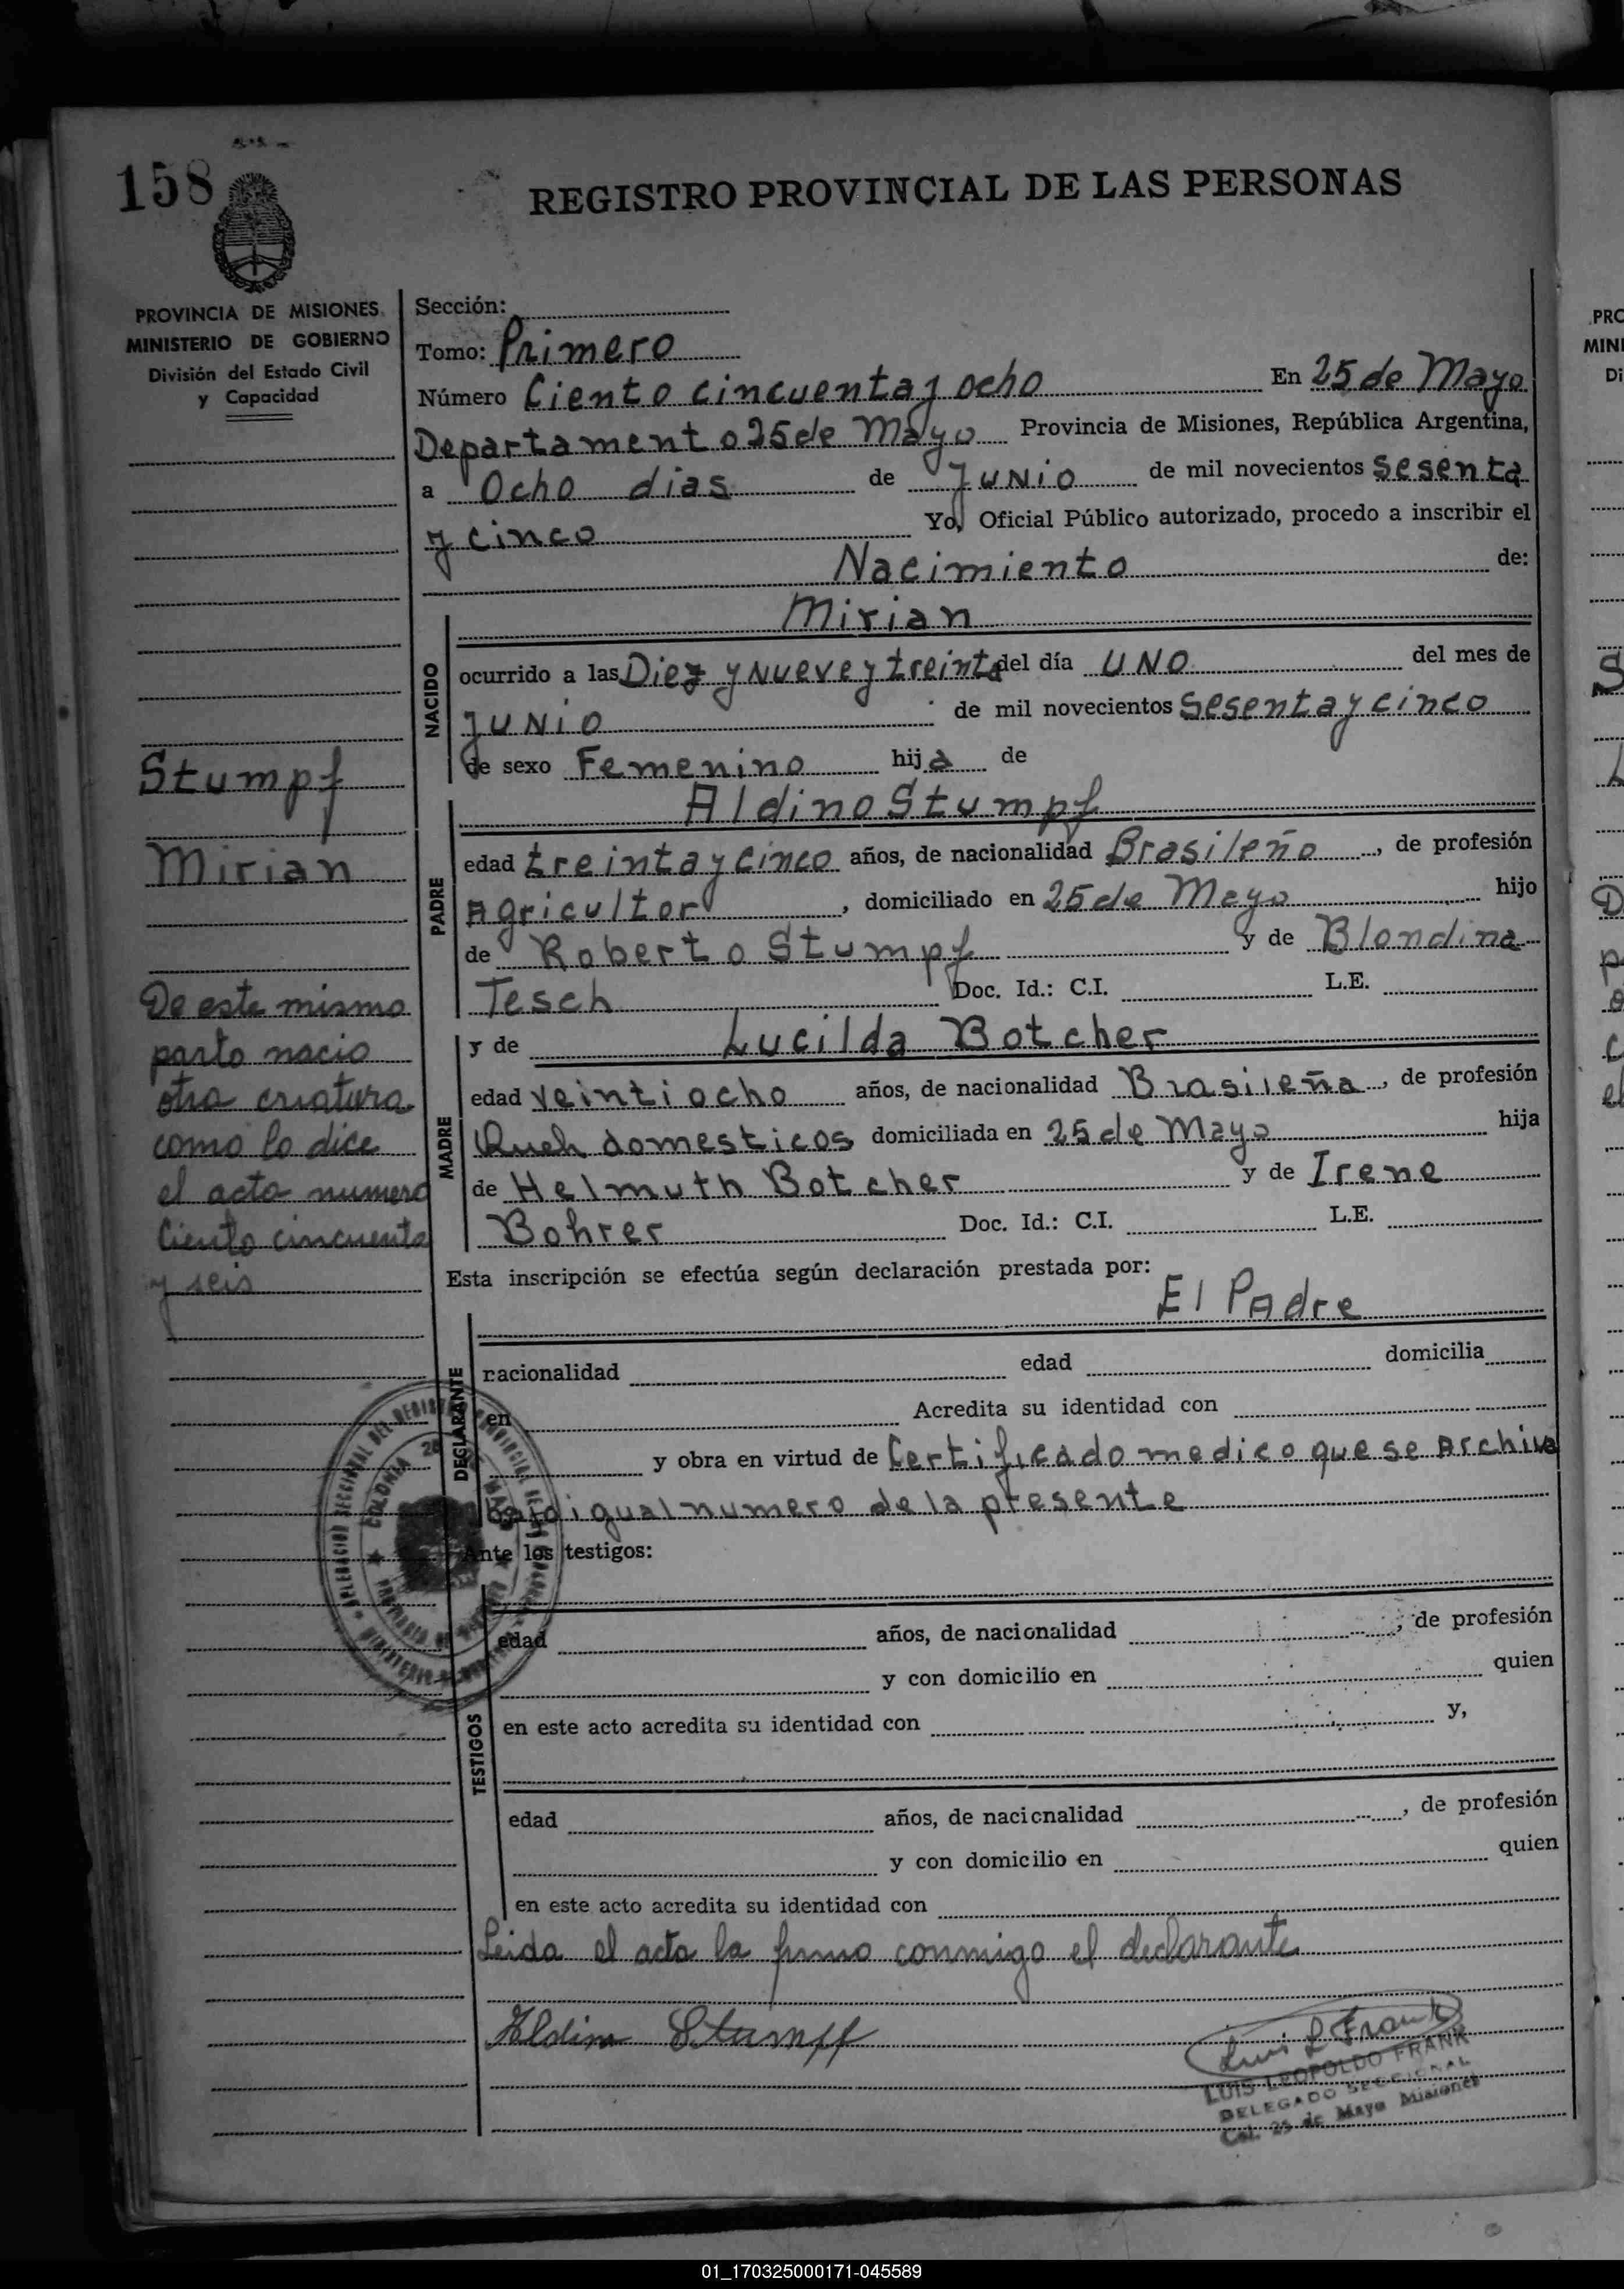 158
REGISTRO PROVINCIAL DE LAS PERSONAS
PROVINCIA DE MISIONES
MINISTERIO DE GOBIERNO
División del Estado Civil
y Capacidad
Stumpf
Mirian
De este mismo
parto nacio
otra criatura
como lo dice
el acta numero
Ciento cincuenta
y seis
Sección:
Tomo: Primero
Número Ciento cincuenta y ocho En 25 de Mayo
Departamento 25 de Mayo Provincia de Misiones, República Argentina,
a Ocho dias de Junio de mil novecientos sesenta
y cinco Yo, Oficial Público autorizado, procedo a inscribir el
Nacimiento de:
Mirian
NACIDO
ocurrido a las Diez y Nueve y treinta del día UNO del mes de
Junio de mil novecientos Sesenta y cinco
de sexo Femenino hija de
Aldino Stumpf
PADRE
edad treinta y cinco años, de nacionalidad Brasileño, de profesión
Agricultor, domiciliado en 25 de Mayo hijo
de Roberto Stumpf y de Blondina
Tesch Doc. Id.: C.I. L.E.
y de Lucilda Botcher
MADRE
edad veintiocho años, de nacionalidad Brasileña, de profesión
Queh domesticos domiciliada en 25 de Mayo hija
de Helmuth Botcher y de Irene
Bohrer Doc. Id.: C.I. L.E.
Esta inscripción se efectúa según declaración prestada por:
El Padre
DECLARANTE
nacionalidad edad domicilia
en Acredita su identidad con
y obra en virtud de Certificado medico que se Archiva
bajo igual numero de la presente
Ante los testigos:
TESTIGOS
edad años, de nacionalidad , de profesión
y con domicilio en quien
en este acto acredita su identidad con y,
edad años, de nacionalidad , de profesión
y con domicilio en quien
en este acto acredita su identidad con
Leida el acta la firmo conmigo el declarante
Aldino Stumpf
Luis L Frank
LUIS LEOPOLDO FRANK
DELEGADO SECCIONAL
Col. 25 de Mayo Misiones
01_170325000171-045589